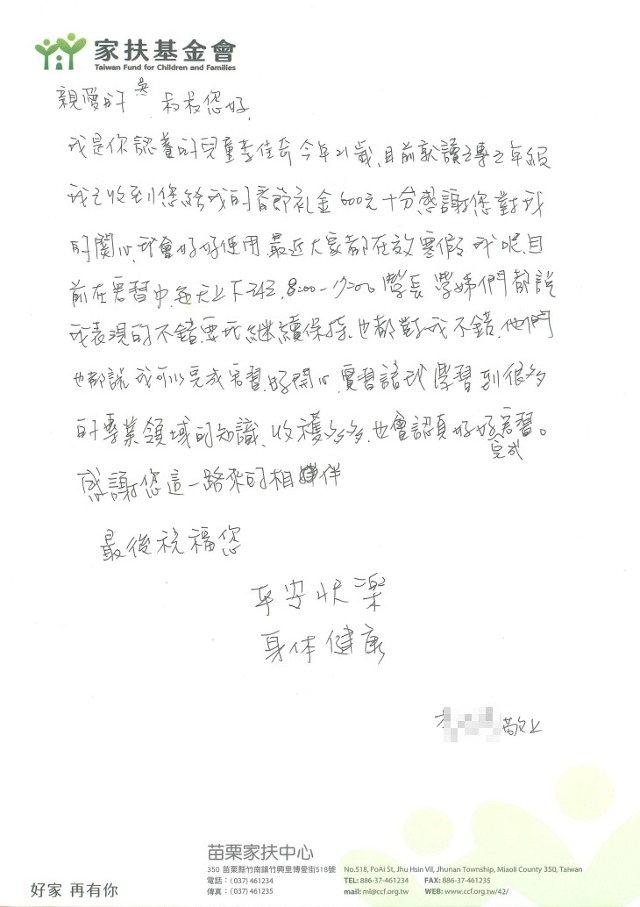 家扶基金會
Taiwan Fund for Children and Families
親愛的吳叔叔您好,
我是你認養的兒童李佳 今年21歲,目前就讀五專五年級
我已收到您給我的春節礼金600元十分感謝您對我
的關心,我會好好使用,最近大家都在放寒假 我呢,目
前在實習中,每天上下班,8:00-17:00 學長 學姊們都說
我表現的不錯,要我繼續保持,也都對我不錯,他們
也都說 我可以完成實習,好開心,實習讓我學習到很多
的專業領域的知識,收獲多多,也會認真好好完成實習。
感謝您這一路來的相伴
最後祝福您
平安快樂
身体健康
李 敬上
苗栗家扶中心
350 苗栗縣竹南鎮竹興里博愛街518號 No.518, PoAi St, Jhu Hsin Vil, Jhunan Township, Miaoli County 350, Taiwan
電話:(037) 461234 TEL: 886-37-461234 FAX: 886-37-461235
傳真:(037) 461235 mail: ml@ccf.org.tw WEB: www.ccf.org.tw/42/
好家 再有你